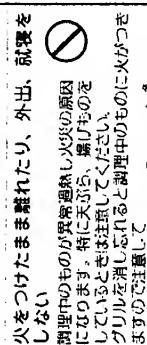 火をつけたまま離れたり、外出、就寝を
しない
調理中のものが異常過熱し火災の原因
になります。特に天ぷら、揚げものを
しているときは注意してください。
グリルを消し忘れると調理中のものに火がつき
ますのでご注意して